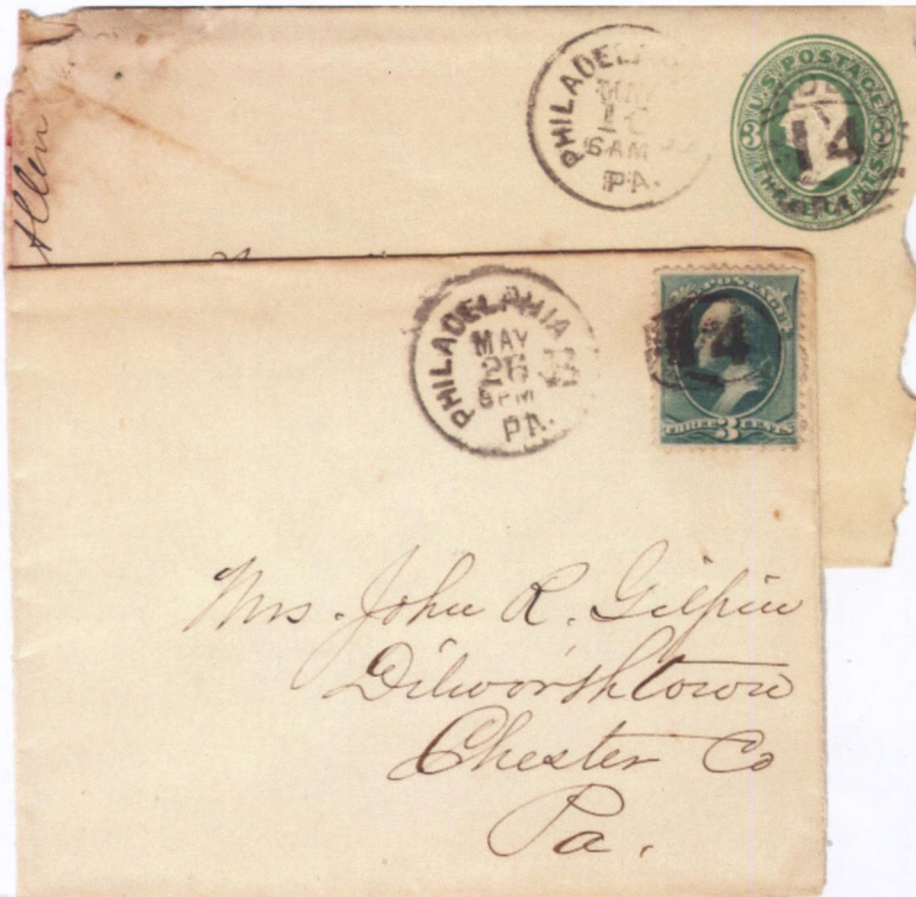 PHILADEL
MAY
6AM
PA.
U.S. POSTAGE
3
THREE CENTS
14
Allen
PHILADELPHIA
MAY
26
PA.
POSTAGE
14
THREE 3 CENTS
Mrs. John R. Gilpin
Dilworthtown
Chester Co
Pa.